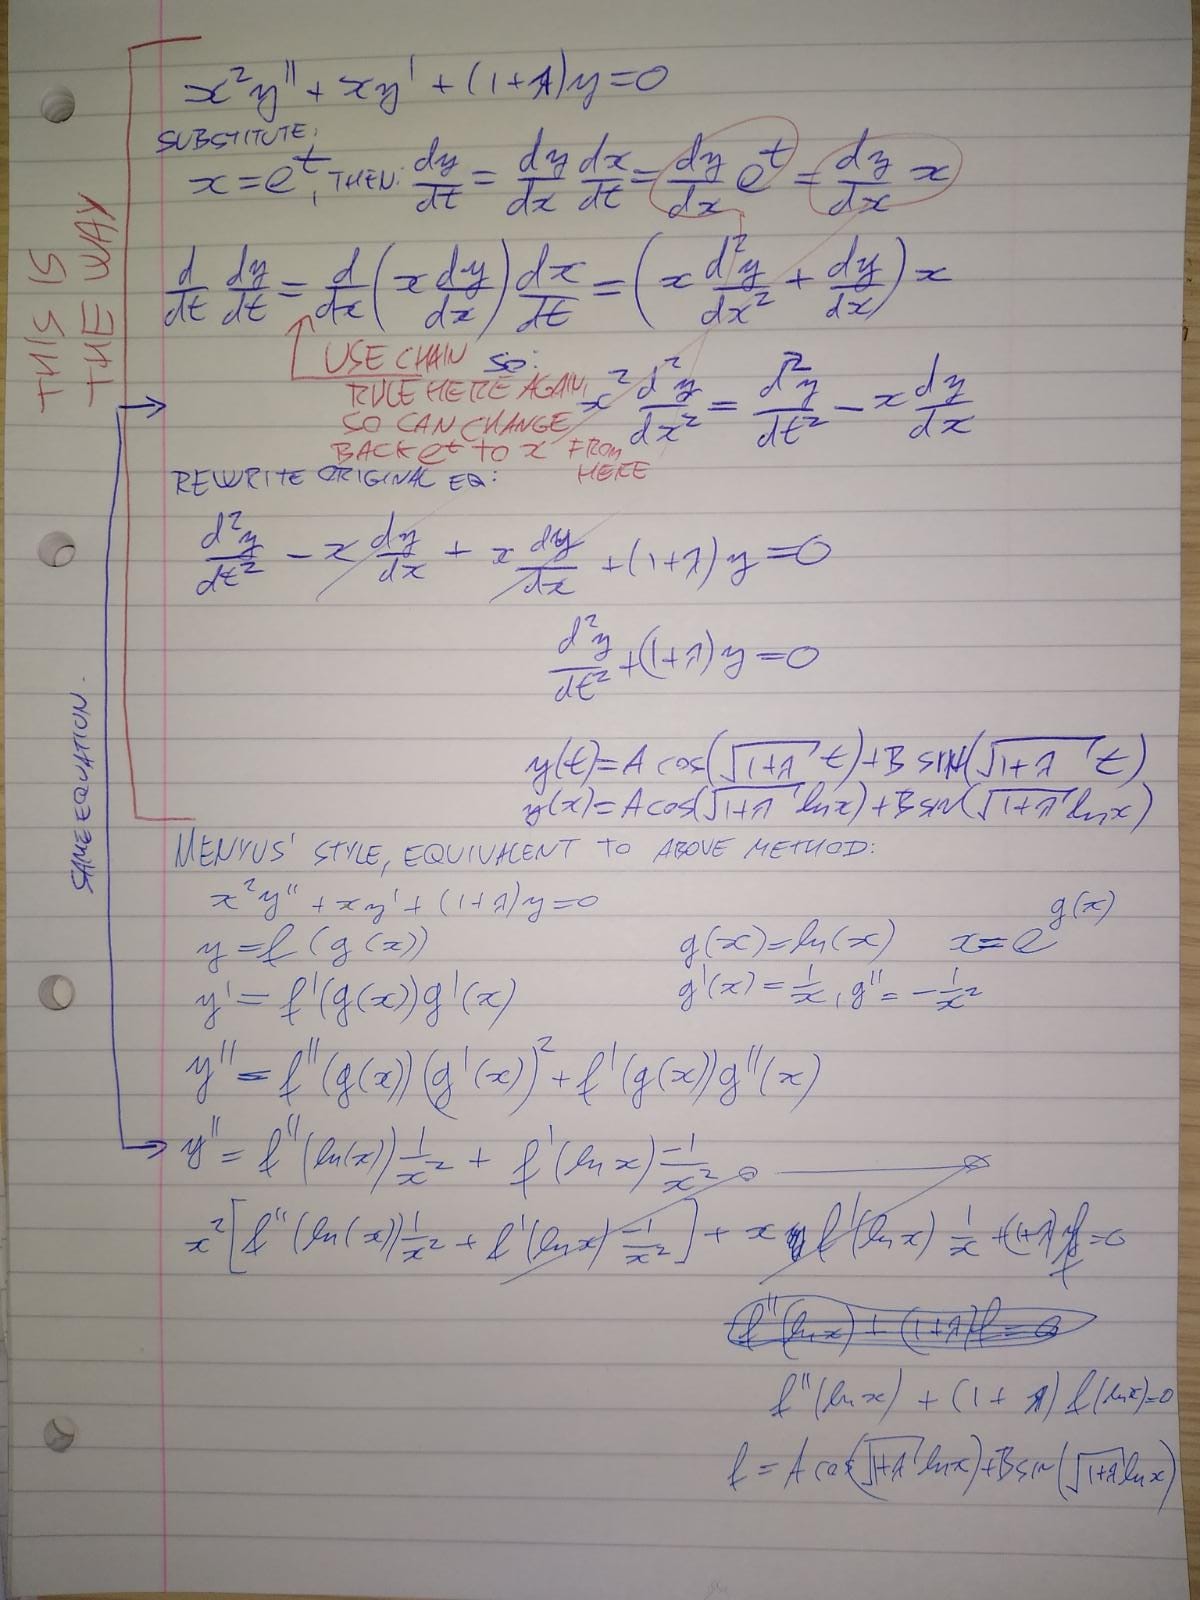 x²y'' + xy' + (1+λ)y = 0
SUBSTITUTE:
x = e^t, THEN: dy/dt = dy/dx dx/dt = dy/dx e^t = dy/dx x
d/dt dy/dt = d/dx (x dy/dx) dx/dt = (x d²y/dx² + dy/dx) x
USE CHAIN
RULE HERE AGAIN,
SO CAN CHANGE
BACK e^t TO x FROM
HERE
SO:
x² d²y/dx² = d²y/dt² - x dy/dx
REWRITE ORIGINAL EQ:
d²y/dt² - x dy/dx + x dy/dx + (1+λ)y = 0
d²y/dt² + (1+λ)y = 0
y(t) = A cos(√(1+λ) t) + B sin(√(1+λ) t)
y(x) = A cos(√(1+λ) ln x) + B sin(√(1+λ) ln x)
THIS IS
THE WAY
SAME EQUATION.
MENYUS' STYLE, EQUIVALENT TO ABOVE METHOD:
x²y'' + xy' + (1+λ)y = 0
y = f(g(x)) g(x) = ln(x) x = e^g(x)
y' = f'(g(x))g'(x) g'(x) = 1/x, g'' = -1/x²
y'' = f''(g(x))(g'(x))² + f'(g(x))g''(x)
y'' = f''(ln(x)) 1/x² + f'(ln x) -1/x²
x²[f''(ln(x)) 1/x² + f'(ln x) -1/x²] + x f'(ln x) 1/x + (1+λ) f = 0
f''(ln x) + (1+λ)f = 0
f''(ln x) + (1+λ) f(ln x) = 0
f = A cos(√(1+λ) ln x) + B sin(√(1+λ) ln x)